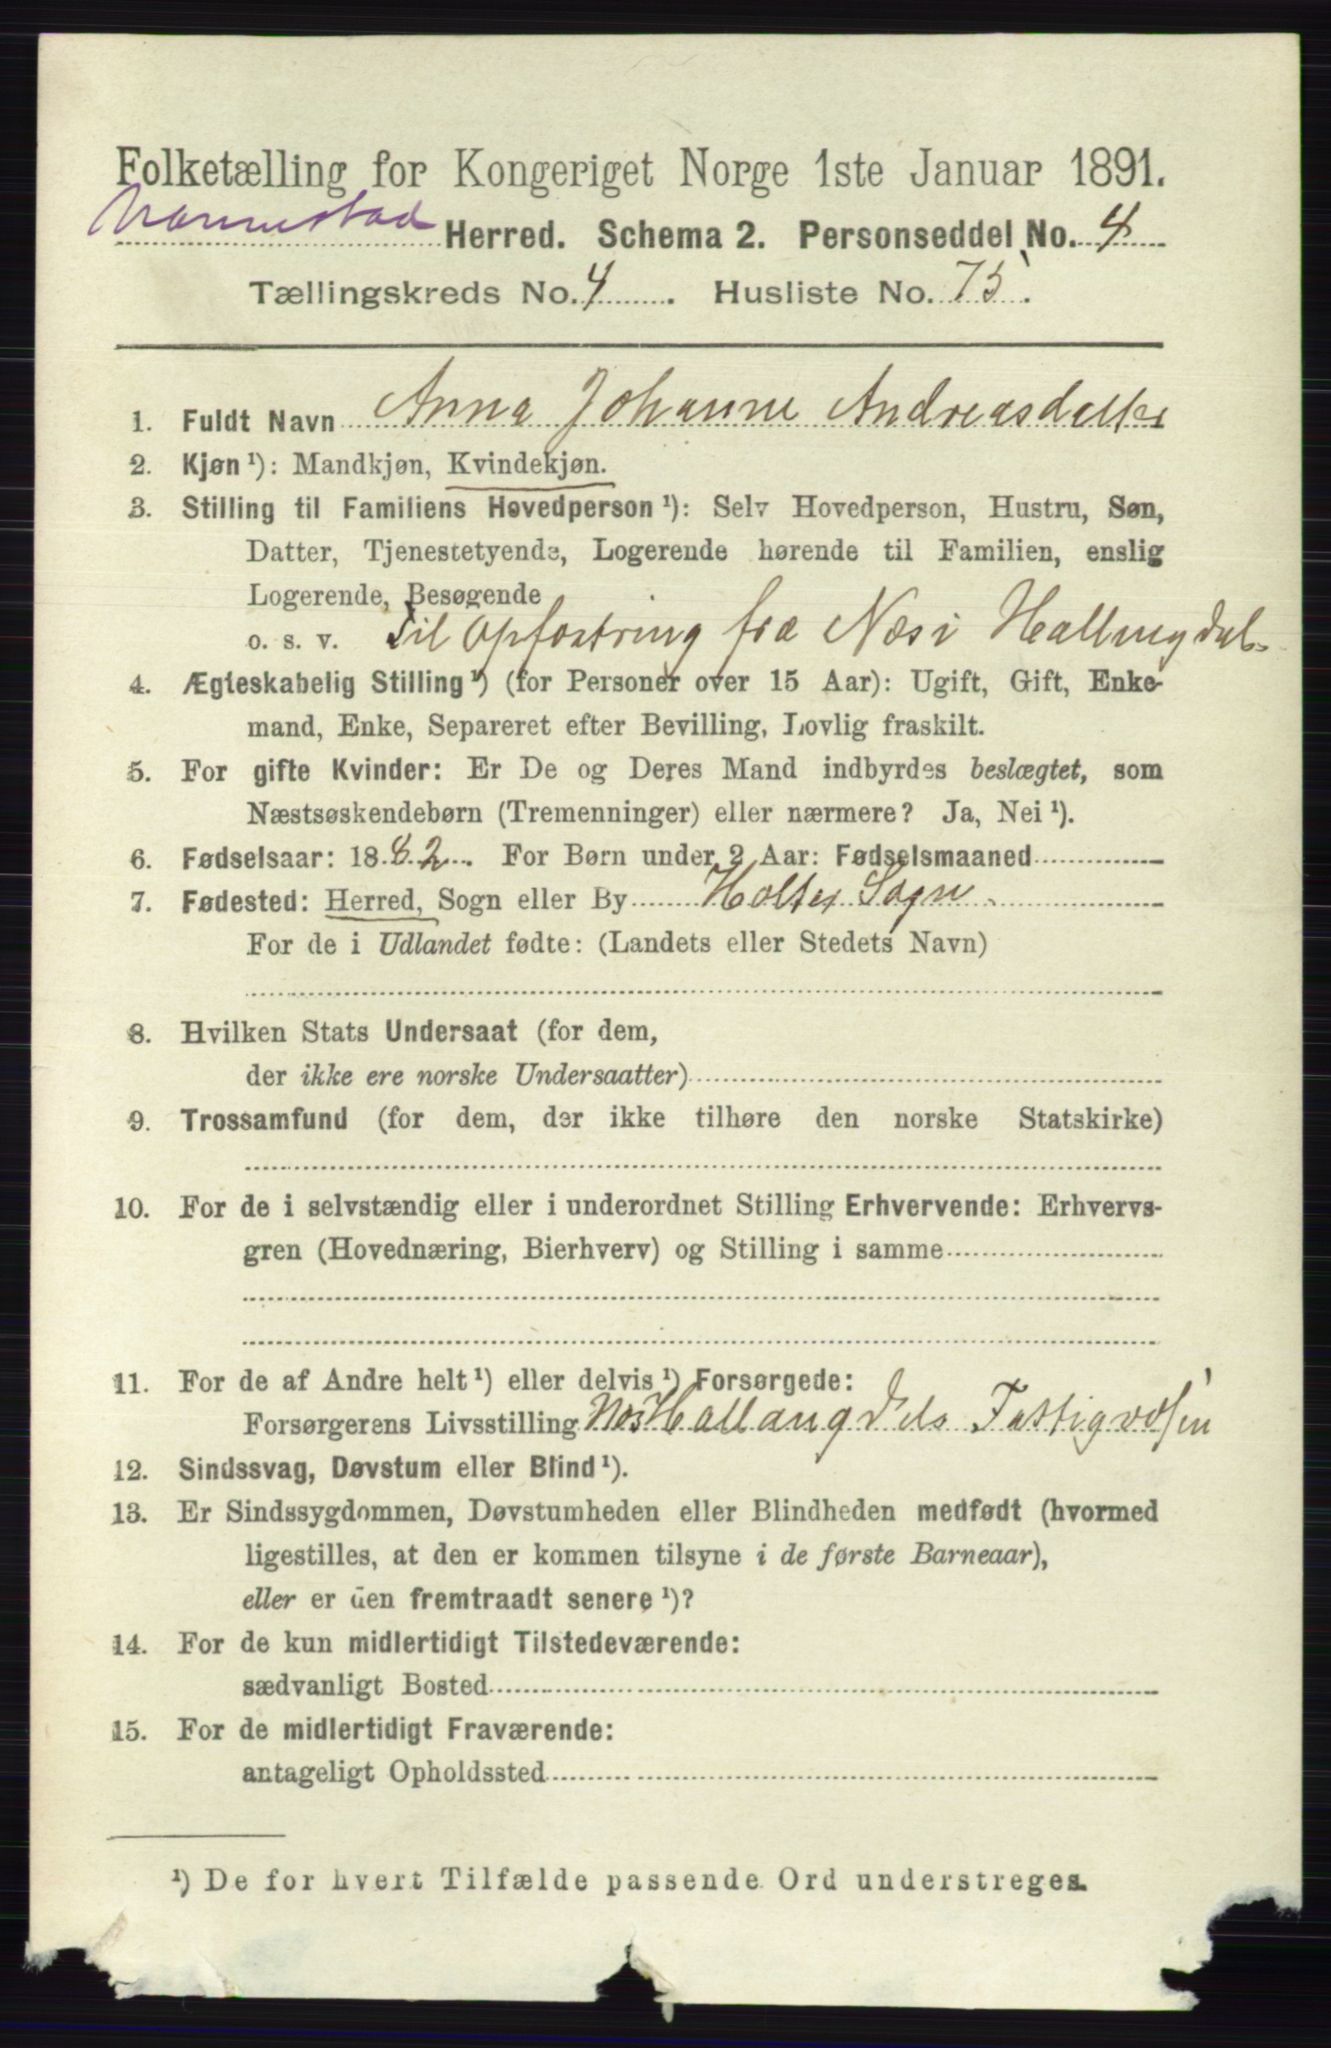 Folketælling for Kongeriget Norge 1ste Januar 1891.
Nannestad Herred. Schema 2. Personseddel No. 4
Tællingskreds No. 4. Husliste No. 75.
1. Fuldt Navn Anna Johanne Andreasdatter
2. Kjøn ¹): Mandkjøn, Kvindekjøn.
3. Stilling til Familiens Hovedperson ¹): Selv Hovedperson, Hustru, Søn,
Datter, Tjenestetyende, Logerende hørende til Familien, enslig
Logerende, Besøgende
o. s. v. Til Opfostring fra Næs i Hallingdal
4. Ægteskabelig Stilling ¹) (for Personer over 15 Aar): Ugift, Gift, Enke-
mand, Enke, Separeret efter Bevilling, Lovlig fraskilt.
5. For gifte Kvinder: Er De og Deres Mand indbyrdes beslægtet, som
Næstsøskendebørn (Tremenninger) eller nærmere? Ja, Nei ¹).
6. Fødselsaar: 1882. For Børn under 2 Aar: Fødselsmaaned
7. Fødested: Herred, Sogn eller By Holter Sogn
For de i Udlandet fødte: (Landets eller Stedets Navn)
8. Hvilken Stats Undersaat (for dem,
der ikke ere norske Undersaatter)
9. Trossamfund (for dem, der ikke tilhøre den norske Statskirke)
10. For de i selvstændig eller i underordnet Stilling Erhvervende: Erhvervs-
gren (Hovednæring, Bierhverv) og Stilling i samme
11. For de af Andre helt ¹) eller delvis ¹) Forsørgede:
Forsørgerens Livsstilling Næs Hallangdels Fattigvæsen
12. Sindssvag, Døvstum eller Blind ¹).
13. Er Sindssygdommen, Døvstumheden eller Blindheden medfødt (hvormed
ligestilles, at den er kommen tilsyne i de første Barneaar),
eller er den fremtraadt senere ¹)?
14. For de kun midlertidigt Tilstedeværende:
sædvanligt Bosted
15. For de midlertidigt Fraværende:
antageligt Opholdssted
¹) De for hvert Tilfælde passende Ord understreges.